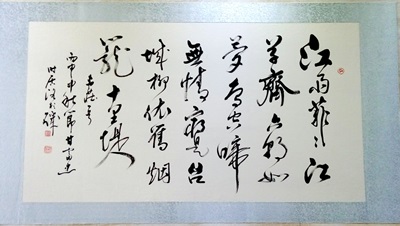 江雨霏〻江
草齊六朝如
夢鳥空啼
無情最是台
城柳依舊烟
籠十里堤
丙申秋